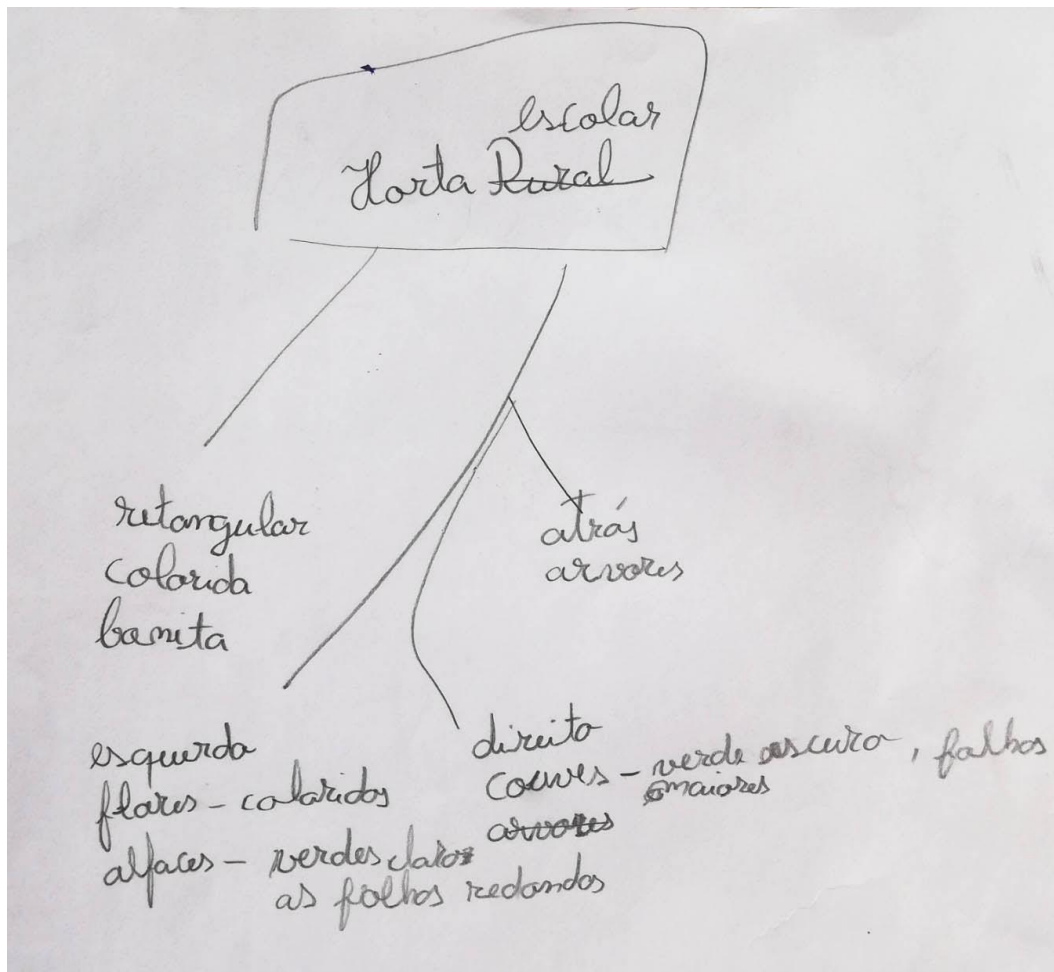 escolar
Horta Rural
retangular
colorida
bonita
atrás
arvores
esquerda
flores - coloridas
alfaces - verdes claros
as folhas redondas
direita
couves - verde escuro, folhas
maiores
arvores